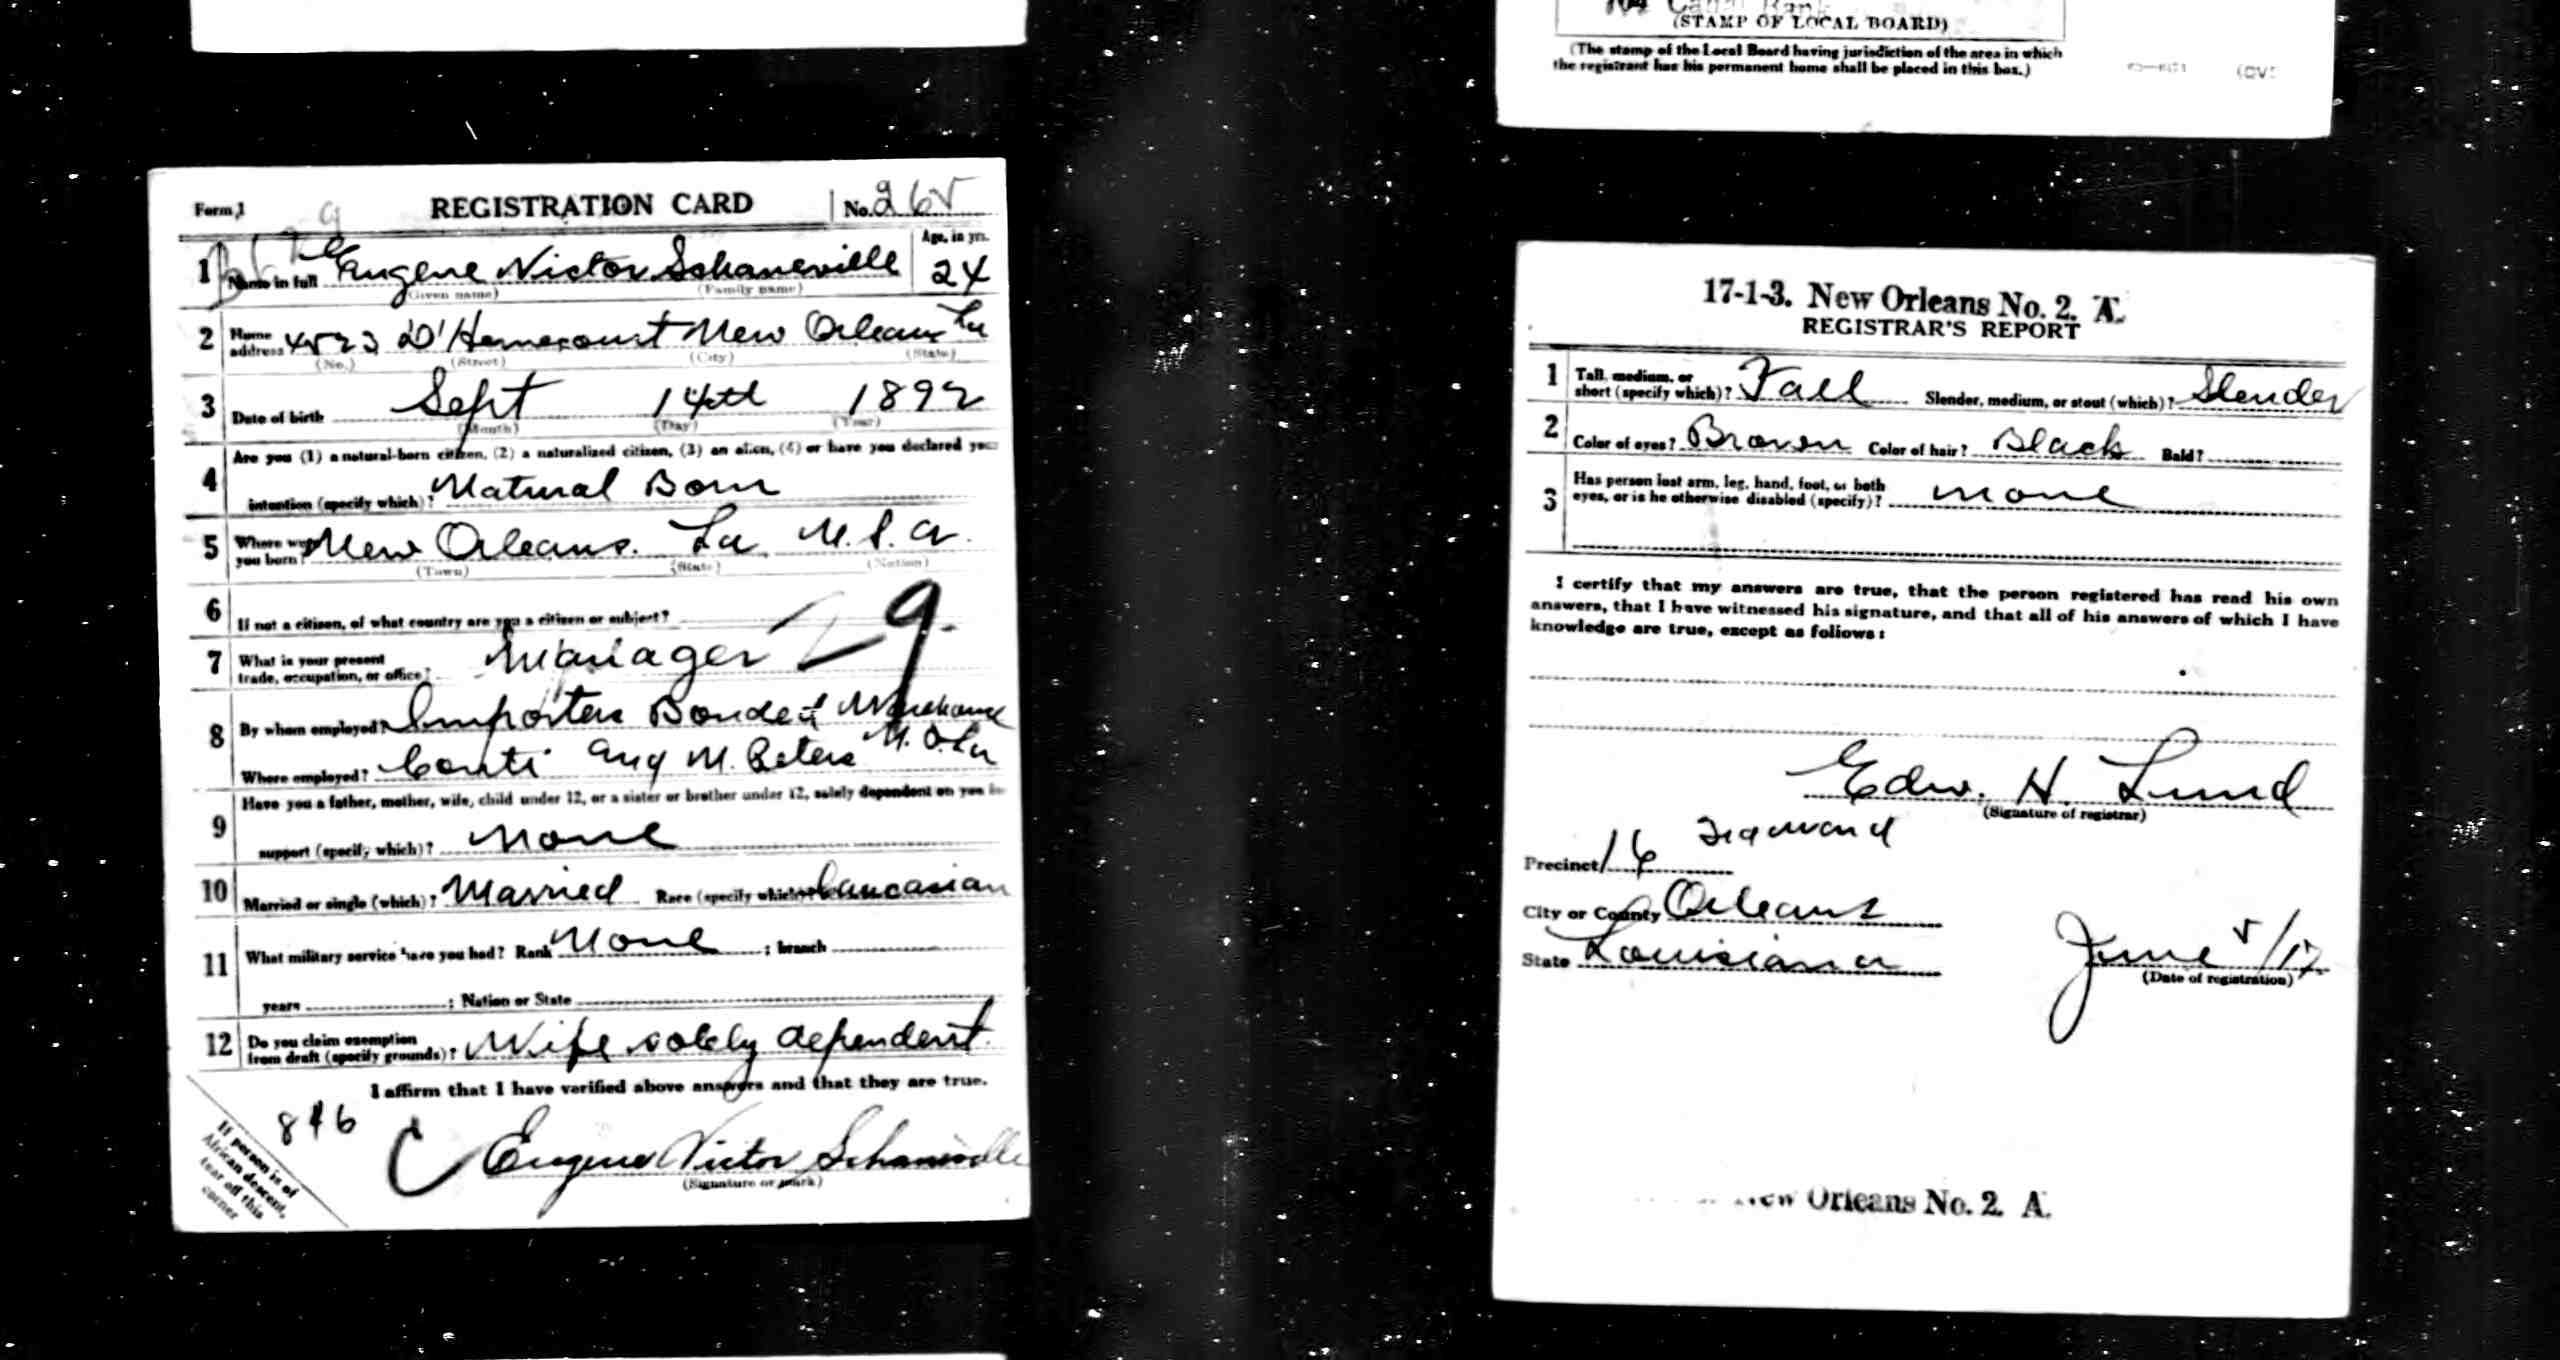 (STAMP OF LOCAL BOARD)
(The stamp of the Local Board having jurisdiction of the area in which
the registrant has his permanent home shall be placed in this box.)
Form 1 REGISTRATION CARD No. 265
1 Name in full Eugene Victor Schaneville Age, in yrs. 24
(Given name) (Family name)
2 Home address 4523 D'Hemecourt New Orleans La
(No.) (Street) (City) (State)
3 Date of birth Sept 14th 1892
(Month) (Day) (Year)
4 Are you (1) a natural-born citizen, (2) a naturalized citizen, (3) an alien, (4) or have you declared your
intention (specify which)? Natural Born
5 Where were you born? New Orleans. La. U.S.A.
(Town) (State) (Nation)
6 If not a citizen, of what country are you a citizen or subject?
7 What is your present trade, occupation, or office? Manager 29
8 By whom employed? Importers Bonded Warehouse
Where employed? Conti and N. Peters N.O. La
9 Have you a father, mother, wife, child under 12, or a sister or brother under 12, solely dependent on you for
support (specify which)? None
10 Married or single (which)? Married Race (specify which)? Caucasian
11 What military service have you had? Rank None ; branch
years ; Nation or State
12 Do you claim exemption from draft (specify grounds)? Wife solely dependent.
I affirm that I have verified above answers and that they are true.
846
C Eugene Victor Schaneville
(Signature or mark)
If person is of
African descent,
tear off this
corner
17-1-3. New Orleans No. 2. A.
REGISTRAR'S REPORT
1 Tall, medium, or short (specify which)? Tall Slender, medium, or stout (which)? Slender
2 Color of eyes? Brown Color of hair? Black Bald?
3 Has person lost arm, leg, hand, foot, or both
eyes, or is he otherwise disabled (specify)? None
I certify that my answers are true, that the person registered has read his own
answers, that I have witnessed his signature, and that all of his answers of which I have
knowledge are true, except as follows:
Edw. H. Lund
(Signature of registrar)
Precinct 16 3rd Ward
City or County Orleans
State Louisiana June 5/17
(Date of registration)
New Orleans No. 2. A.